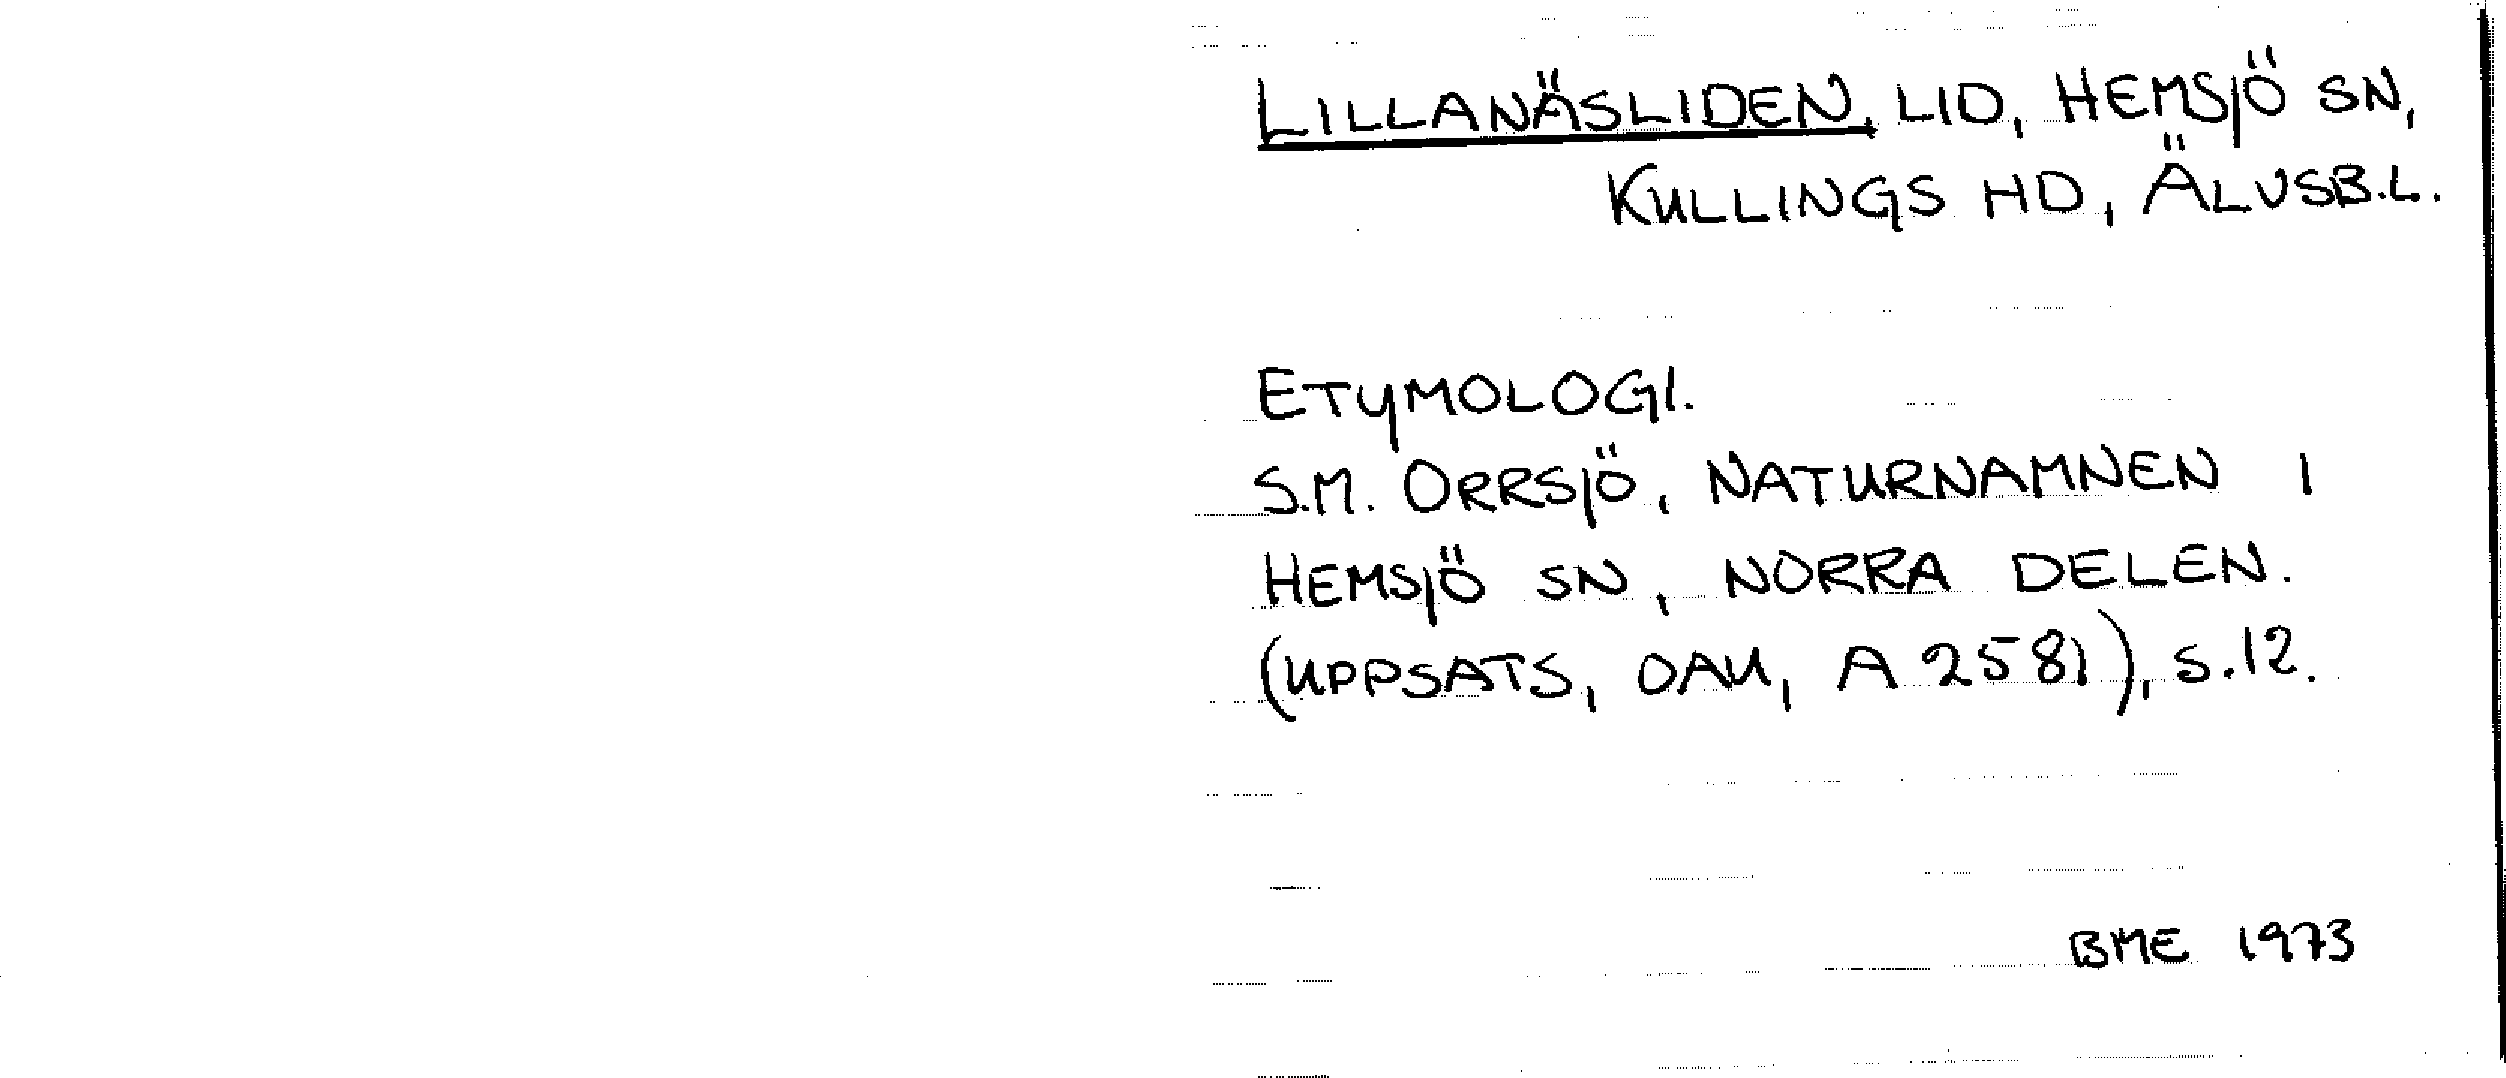 LILLANÄSLIDEN, LID, HEMSJÖ SN,
KULLINGS HD, ÄLVSB.L.
ETYMOLOGI.
S.M. ORRSJÖ, NATURNAMNEN I
HEMSJÖ SN, NORRA DELEN.
(UPPSATS, OAU, A 2581), S.12.
BME 1973